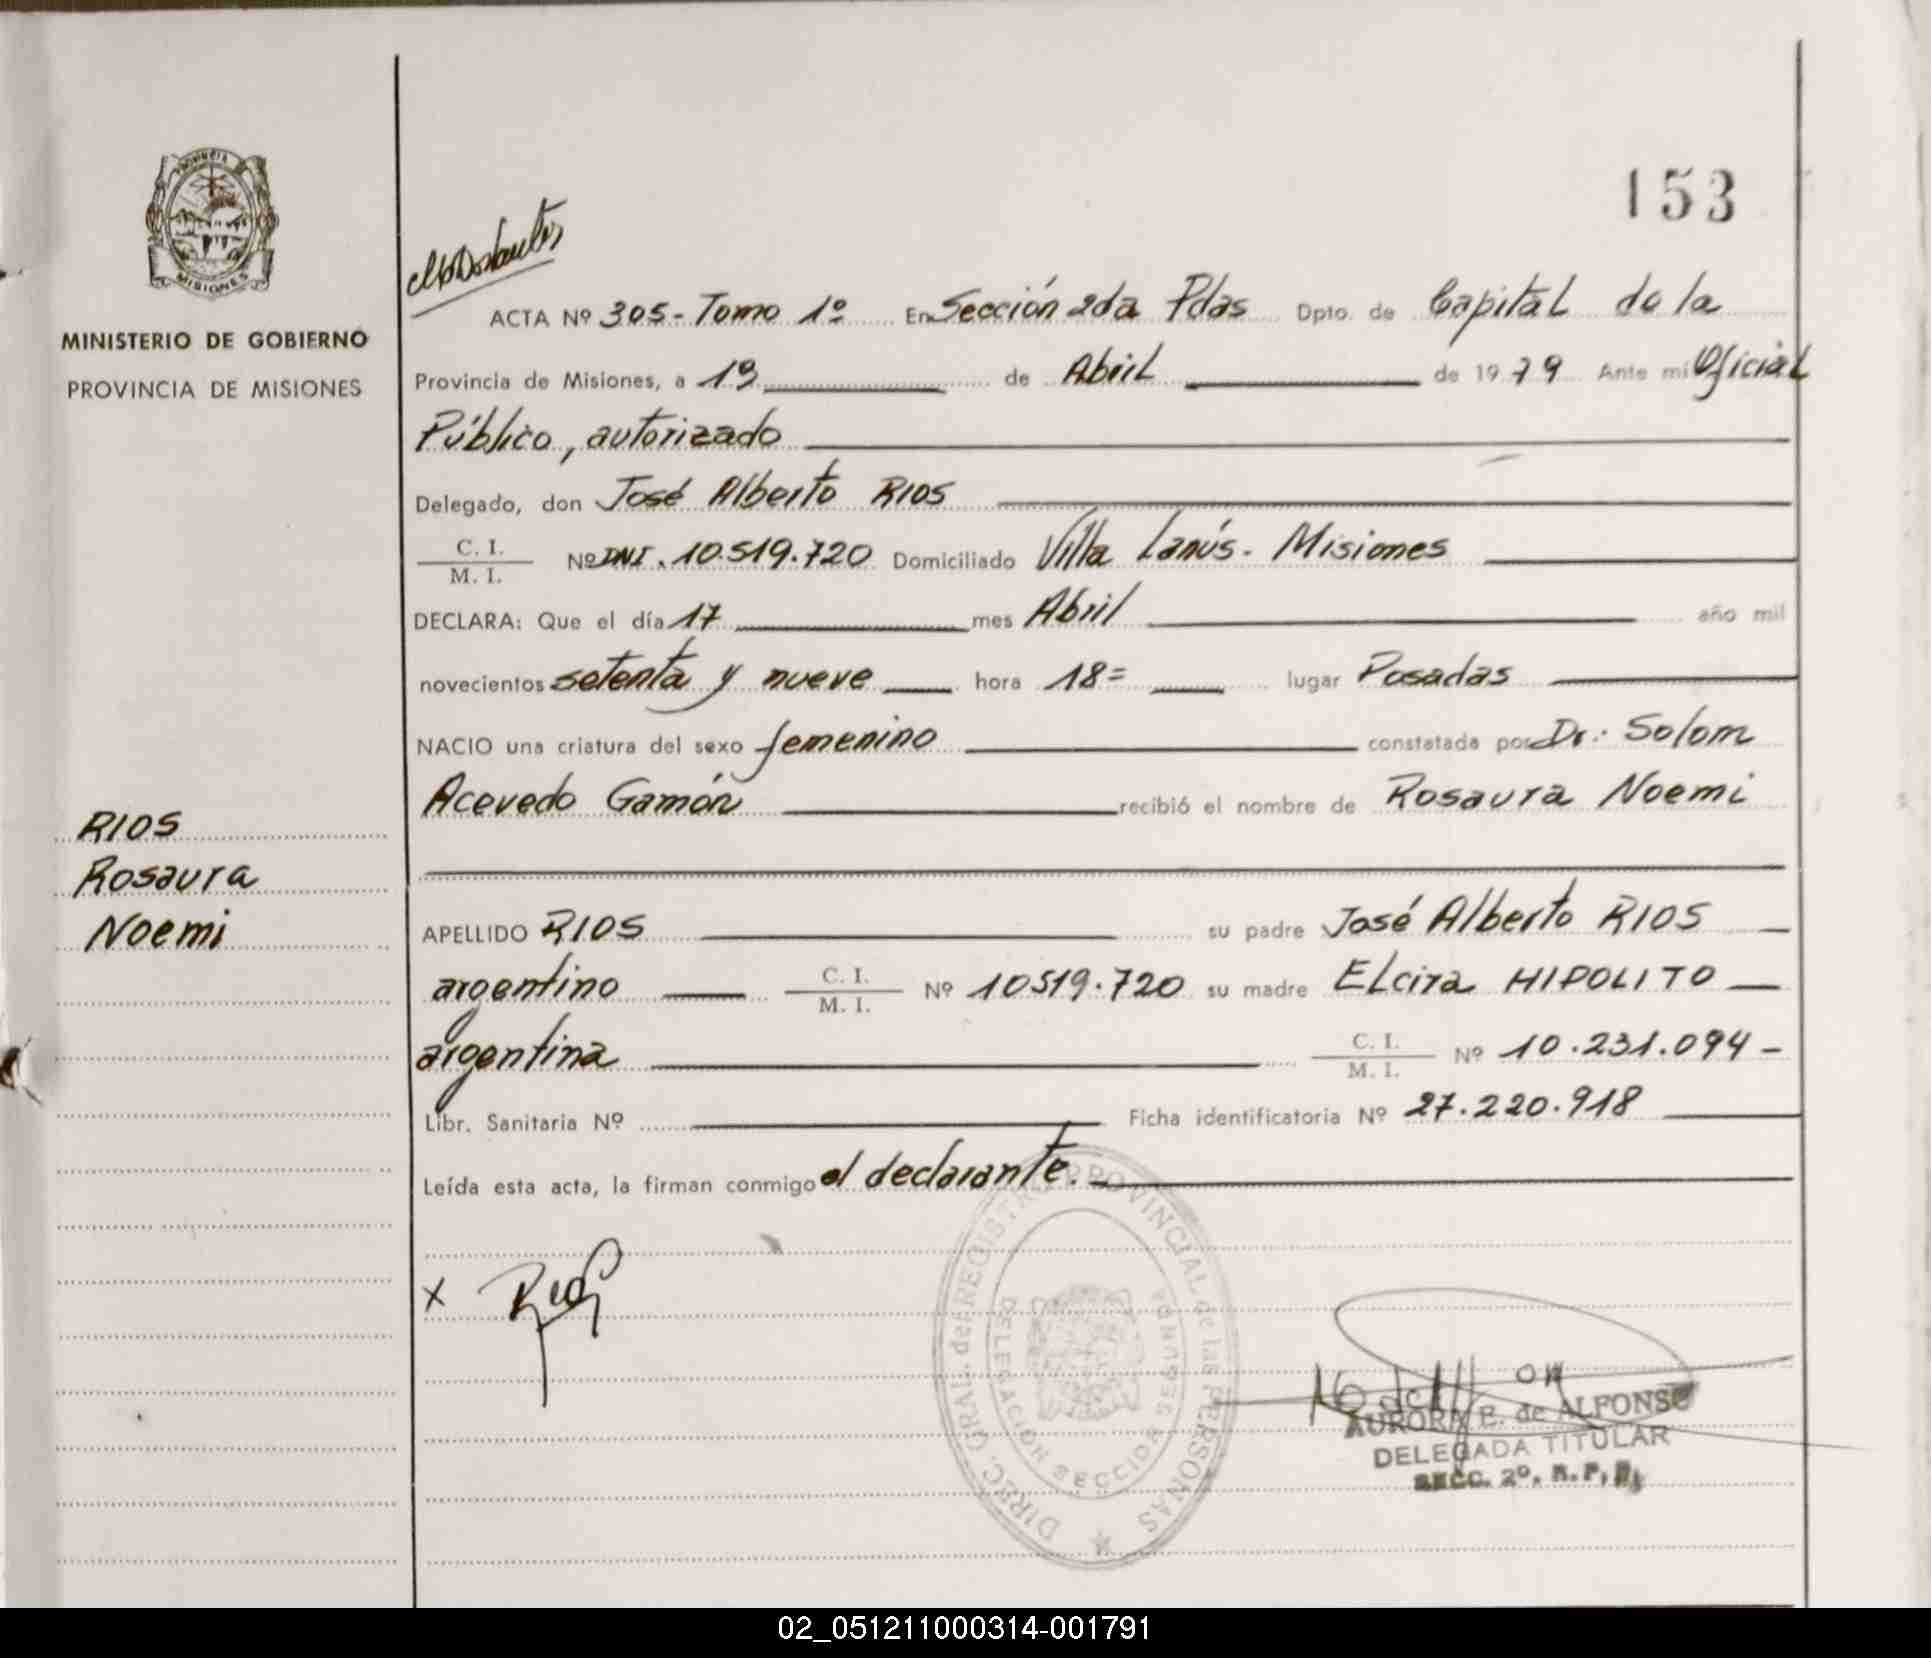 153
PROVINCIA
MISIONES
MINISTERIO DE GOBIERNO
PROVINCIA DE MISIONES
ACTA Nº 305 - Tomo 1º En Sección 2da Pdas Dpto. de Capital de la
Provincia de Misiones, a 19 de Abril de 1979 Ante mi Oficial
Público, autorizado
Delegado, don José Alberto RIOS
C. I.
M. I. Nº DNI. 10.519.720 Domiciliado Villa Lanús - Misiones
DECLARA: Que el día 17 mes Abril año mil
novecientos setenta y nueve hora 18= lugar Posadas
NACIO una criatura del sexo femenino constatada por Dr.: Solom
Acevedo Gamón recibió el nombre de Rosaura Noemi
RIOS
Rosaura
Noemi
APELLIDO RIOS su padre José Alberto RIOS
argentino C. I. M. I. Nº 10519.720 su madre ELcira HIPOLITO
argentina C. I. M. I. Nº 10.231.094 -
Libr. Sanitaria Nº Ficha identificatoria Nº 27.220.918
Leída esta acta, la firman conmigo el declarante.
X
DIREC. GRAL. del REGISTRO PROVINCIAL de las PERSONAS
DELEGACION SECCION SEGUNDA
AURORA E. de ALFONSO
DELEGADA TITULAR
SECC. 2º. R. P. P.
02_051211000314-001791